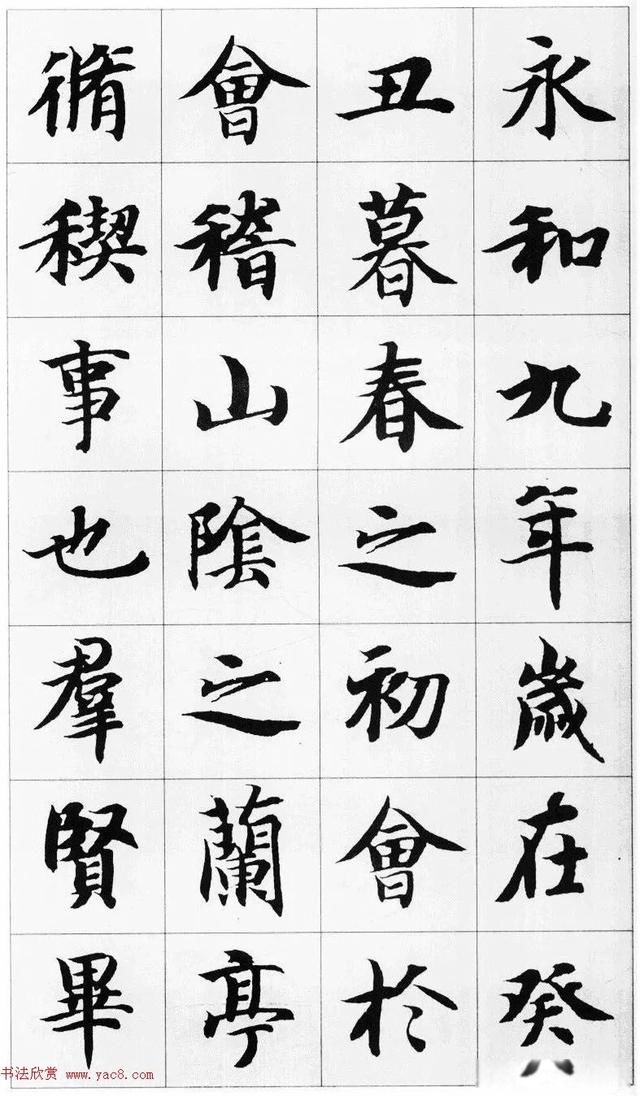 永和九年歲在癸
丑暮春之初會於
會稽山陰之蘭亭
脩稧事也羣賢畢
书法欣赏 www.yac8.com